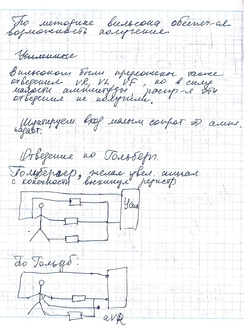 По методике Вильсона обеспеч-ся
возможность получения
Усиленные
Вильсоном были предложены также
отведения VR, VL, VF, но в силу
малости амплитуды распр-я эти
отведения не получили.
Шунтируем вход малым сопрот ⇒ ампл.
падает.
Отведения по Гольдберг.
Гольдбергер, желая увел. сигнал
с конечности выкинул резистор
Усил
По Гольдб:
aVR